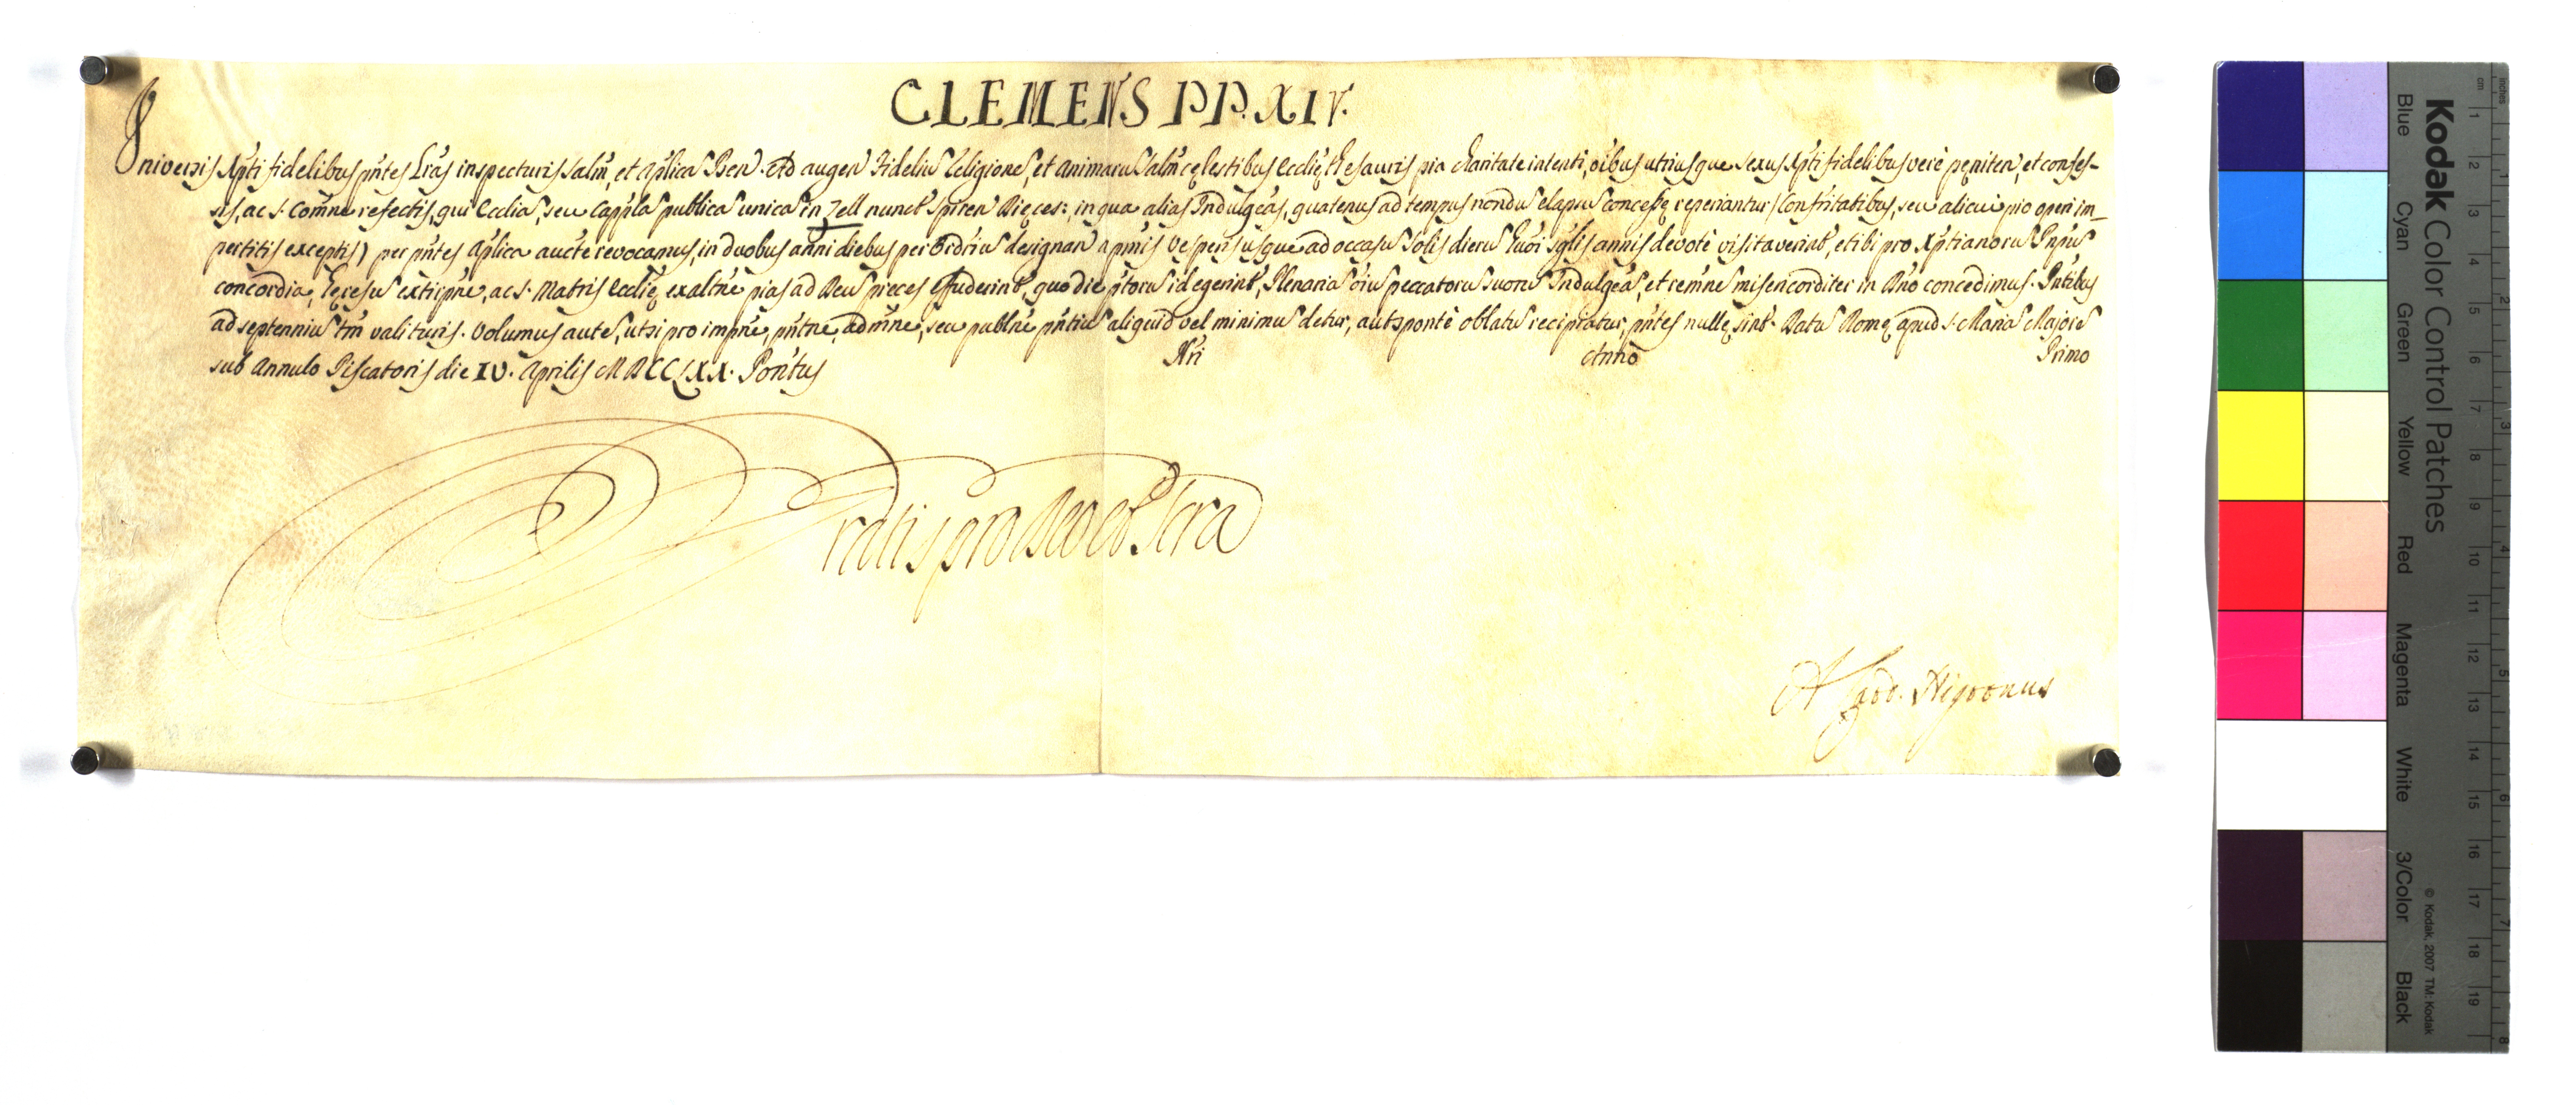 CLEMENS PP. XIV.
Universis Xpti fidelibus pntes Lras inspecturis Salm, et Aplica Ben. Ad augen Fidelium Religione, et animaru Salm cęlestibus Ecclię Thesauris pia charitate intenti, oibus utriusque sexus Xpti fidelibus verè pęniten, et confes-
sis, ac S. Comne refectis, qui Ecclia, seu Cappla publica unica in Zell nuncł Spiren Dięces: in qua alias Indulgeas, quatenus ad tempus nondu elapsu concessę reperiantur (Confritatibus, seu alicui pio operi im_
pertitis exceptis) per pntes Aplica aucte revocamus, in duobus anni diebus per Ordriu designan a pmis Vesperis usque ad occasu Solis dieru huoi sglis annis devotè visitaverint, et ibi pro Xptianoru Pnpu
concordia, hęresu extirpne, ac S. Matris Ecclię exaltne pias ad Deu preces effuderint, quo die ptoru id egerint, Plenaria oiu peccatoru suoru Indulgea, et remne misericorditer in Dno concedimus. Pntibus
ad septenniu tm valituris. Volumus aute, ut si pro impne, pntne, admne, seu publne pntiu aliquid vel minimu detur, aut sponte oblatu recipiatur, pntes nullę sint. Datu Romę apud S. Maria Majore
sub Annulo Piscatoris die IV. Aprilis MDCCLXX. Pontus Nri Anno Primo
Gratis pro Deo et Scra
A Card. Nigronus
Kodak Color Control Patches
Blue Cyan Green Yellow Red Magenta White 3/Color Black
© Kodak, 2007 TM: Kodak
cm 1 2 3 4 5 6 7 8 9 10 11 12 13 14 15 16 17 18 19
inches 1 2 3 4 5 6 7 8